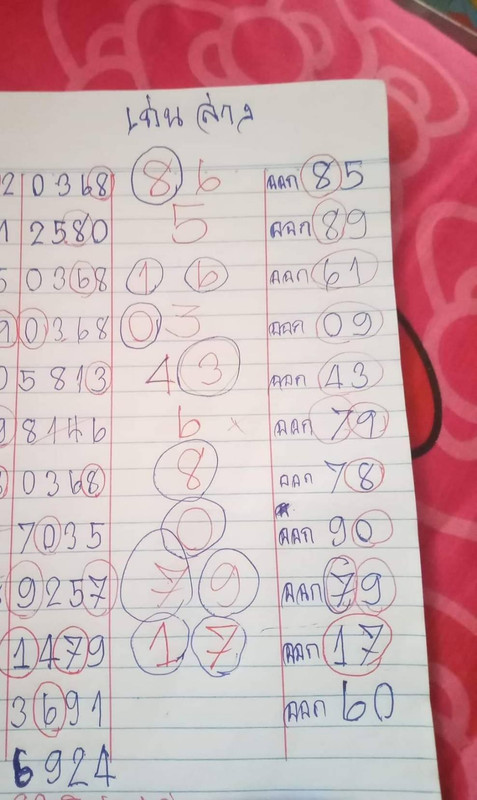 เด่น ล่าง
2 0368 8 6 ออก 85
1 2580 5 ออก 89
5 0368 1 6 ออก 61
9 0368 0 3 ออก 09
0 5813 4 3 ออก 43
9 8146 6 x ออก 79
0368 8 ออก 78
7035 0 ออก 90
9257 7 9 ออก 79
1479 1 7 ออก 17
3691 ออก 60
6924